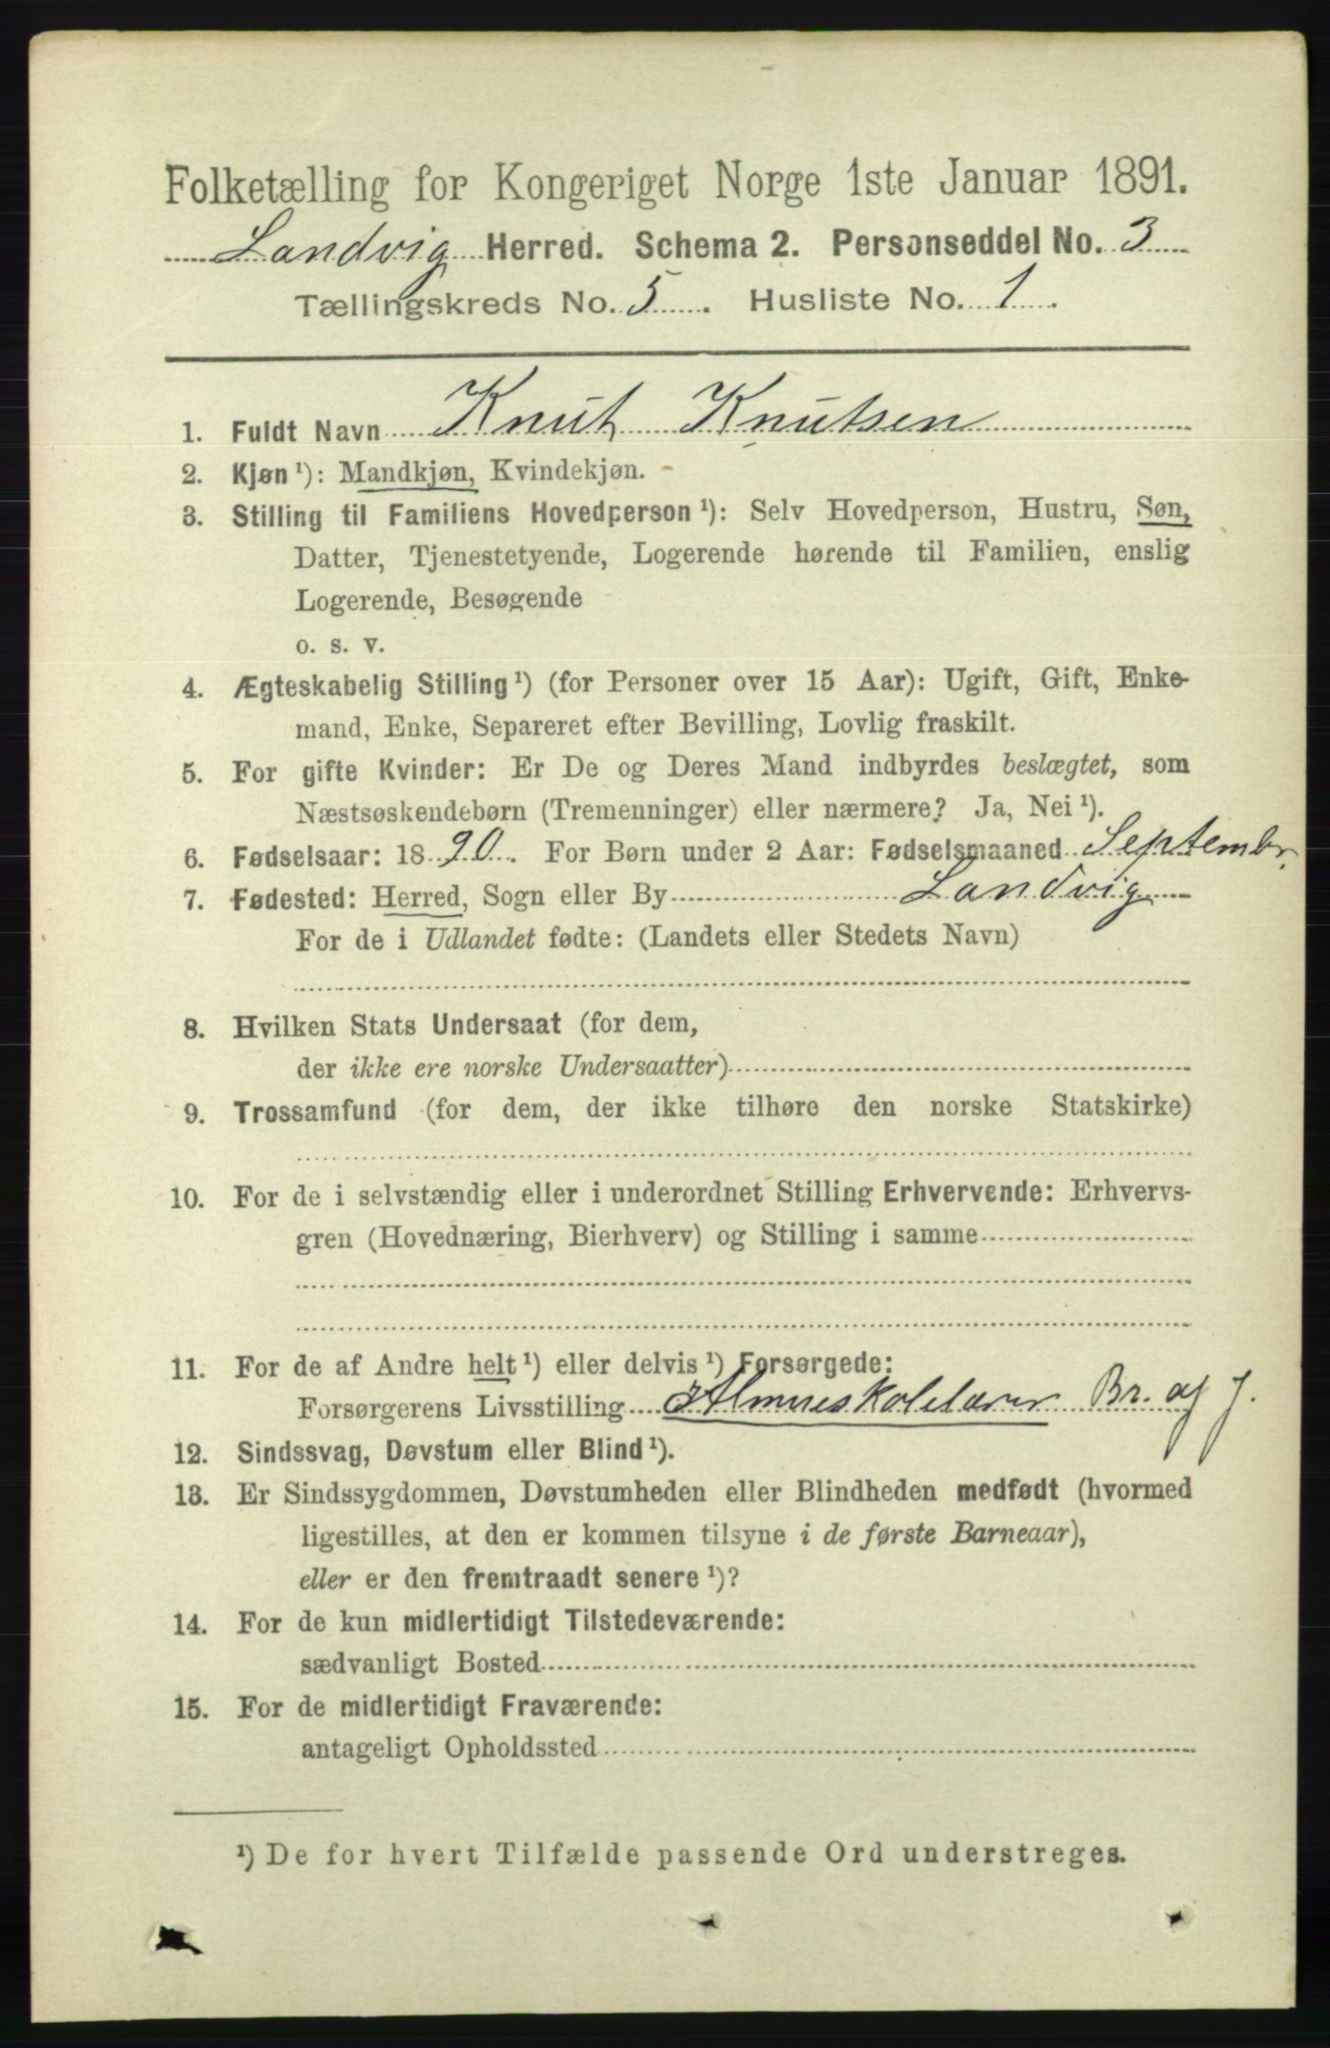 Folketælling for Kongeriget Norge 1ste Januar 1891.
Landvig Herred. Schema 2. Personseddel No. 3
Tællingskreds No. 5. Husliste No. 1.
1. Fuldt Navn Knut Knutsen
2. Kjøn ¹): Mandkjøn, Kvindekjøn.
3. Stilling til Familiens Hovedperson ¹): Selv Hovedperson, Hustru, Søn,
Datter, Tjenestetyende, Logerende hørende til Familien, enslig
Logerende, Besøgende
o. s. v.
4. Ægteskabelig Stilling ¹) (for Personer over 15 Aar): Ugift, Gift, Enke-
mand, Enke, Separeret efter Bevilling, Lovlig fraskilt.
5. For gifte Kvinder: Er De og Deres Mand indbyrdes beslægtet, som
Næstsøskendebørn (Tremenninger) eller nærmere? Ja, Nei ¹).
6. Fødselsaar: 1890. For Børn under 2 Aar: Fødselsmaaned Septembr.
7. Fødested: Herred, Sogn eller By Landvig
For de i Udlandet fødte: (Landets eller Stedets Navn)
8. Hvilken Stats Undersaat (for dem,
der ikke ere norske Undersaatter)
9. Trossamfund (for dem, der ikke tilhøre den norske Statskirke)
10. For de i selvstændig eller i underordnet Stilling Erhvervende: Erhvervs-
gren (Hovednæring, Bierhverv) og Stilling i samme
11. For de af Andre helt ¹) eller delvis ¹) Forsørgede:
Forsørgerens Livsstilling Almueskolelærer Br. af J.
12. Sindssvag, Døvstum eller Blind ¹).
13. Er Sindssygdommen, Døvstumheden eller Blindheden medfødt (hvormed
ligestilles, at den er kommen tilsyne i de første Barneaar),
eller er den fremtraadt senere ¹)?
14. For de kun midlertidigt Tilstedeværende:
sædvanligt Bosted
15. For de midlertidigt Fraværende:
antageligt Opholdssted
¹) De for hvert Tilfælde passende Ord understreges.